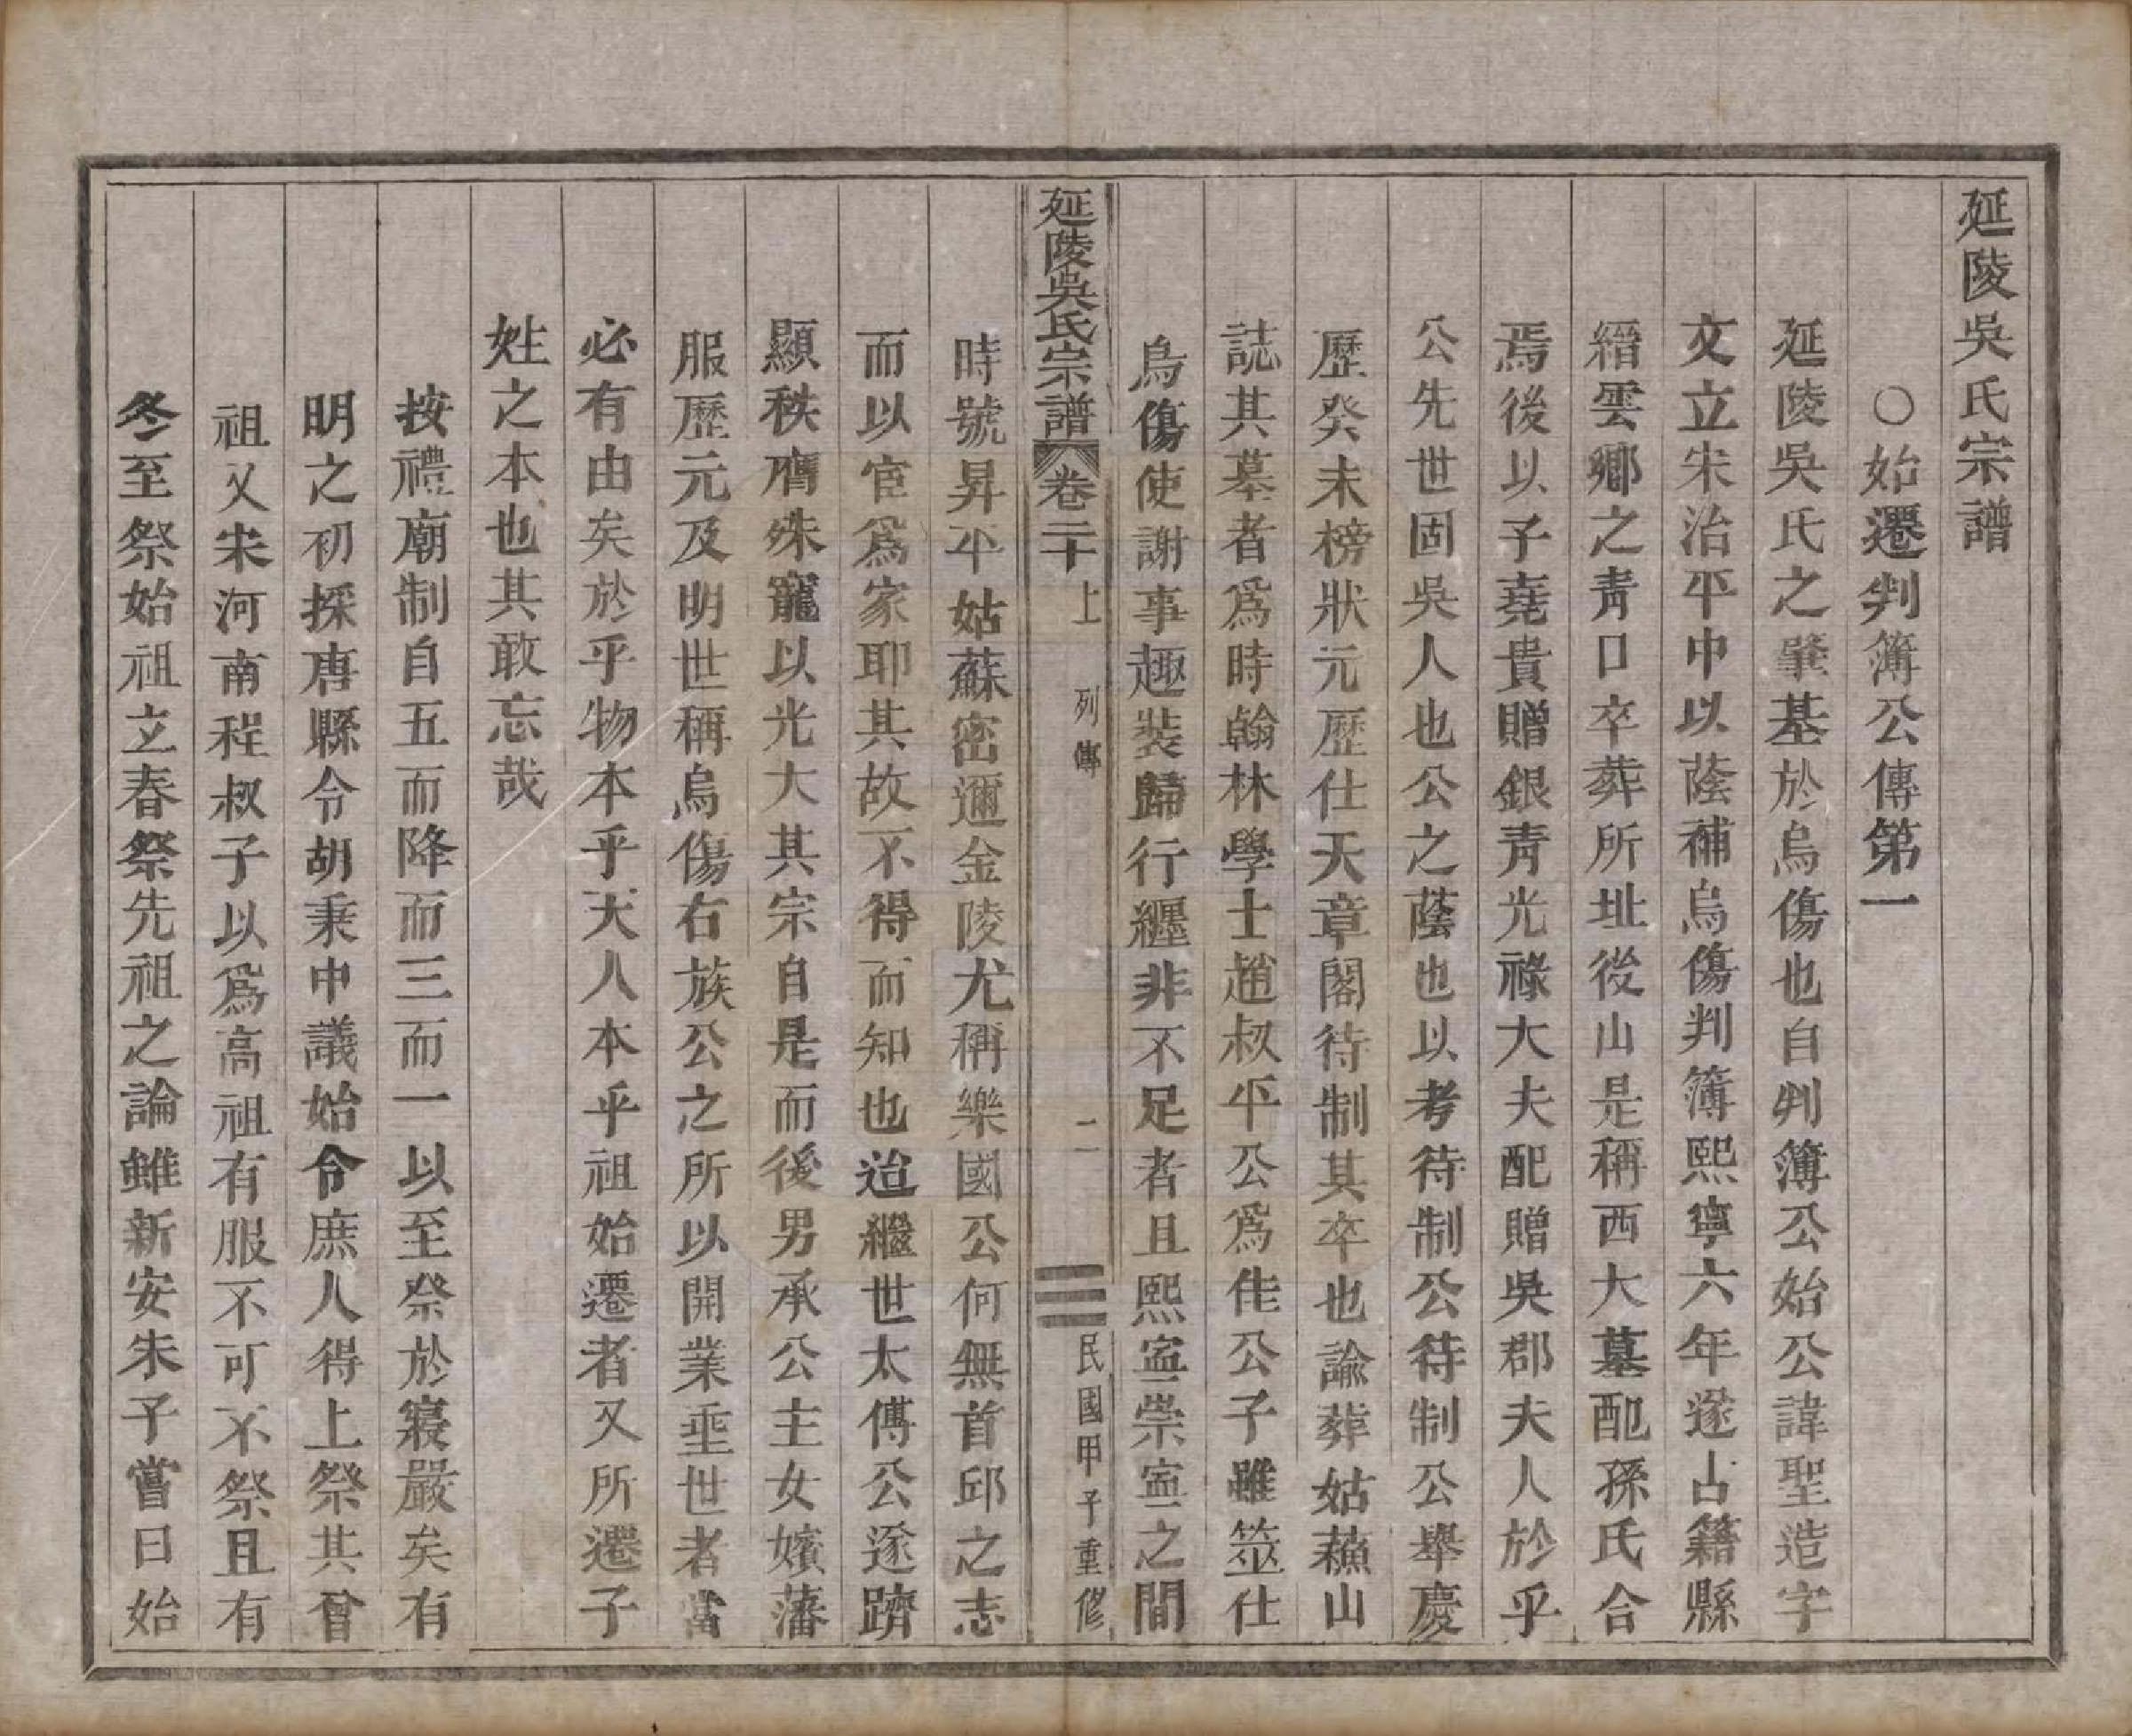 延陵吳氏宗譜
○始遷判簿公傳第一
延陵吳氏之肇基於烏傷也自判簿公始公諱聖造字
文立宋治平中以蔭補烏傷判簿熙寧六年遂占籍縣
縉雲鄉之靑口卒葬所址後山是稱西大墓配孫氏合
焉後以子堯貴贈銀靑光祿大夫配贈吳郡夫人於乎
公先世固吳人也公之蔭也以考待制公待制公舉慶
歷癸未榜狀元歷仕天章閣待制其卒也諭葬姑蘓山
誌其墓者爲時翰林學士趙叔平公爲佳公子雖筮仕
烏傷使謝事趣裝歸行纒非不足者且熙寍崇寍之間
延陵吳氏宗譜 卷二十上 列傳 二 民國甲子重修
時號昇平姑蘇密邇金陵尤稱樂國公何無首邱之志
而以官爲家耶其故不得而知也迨繼世太傅公遂躋
顯秩膺殊寵以光大其宗自是而後男承公主女嬪藩
服歷元及明世稱烏傷右族公之所以開業垂世者當
必有由矣於乎物本乎天人本乎祖始遷者又所遷子
姓之本也其敢忘哉
按禮廟制自五而降而三而一以至祭於寢嚴矣有
明之初採唐縣令胡秉中議始令庶人得上祭其曾
祖又宋河南程叔子以爲高祖有服不可不祭且有
冬至祭始祖立春祭先祖之論雖新安朱子嘗曰始